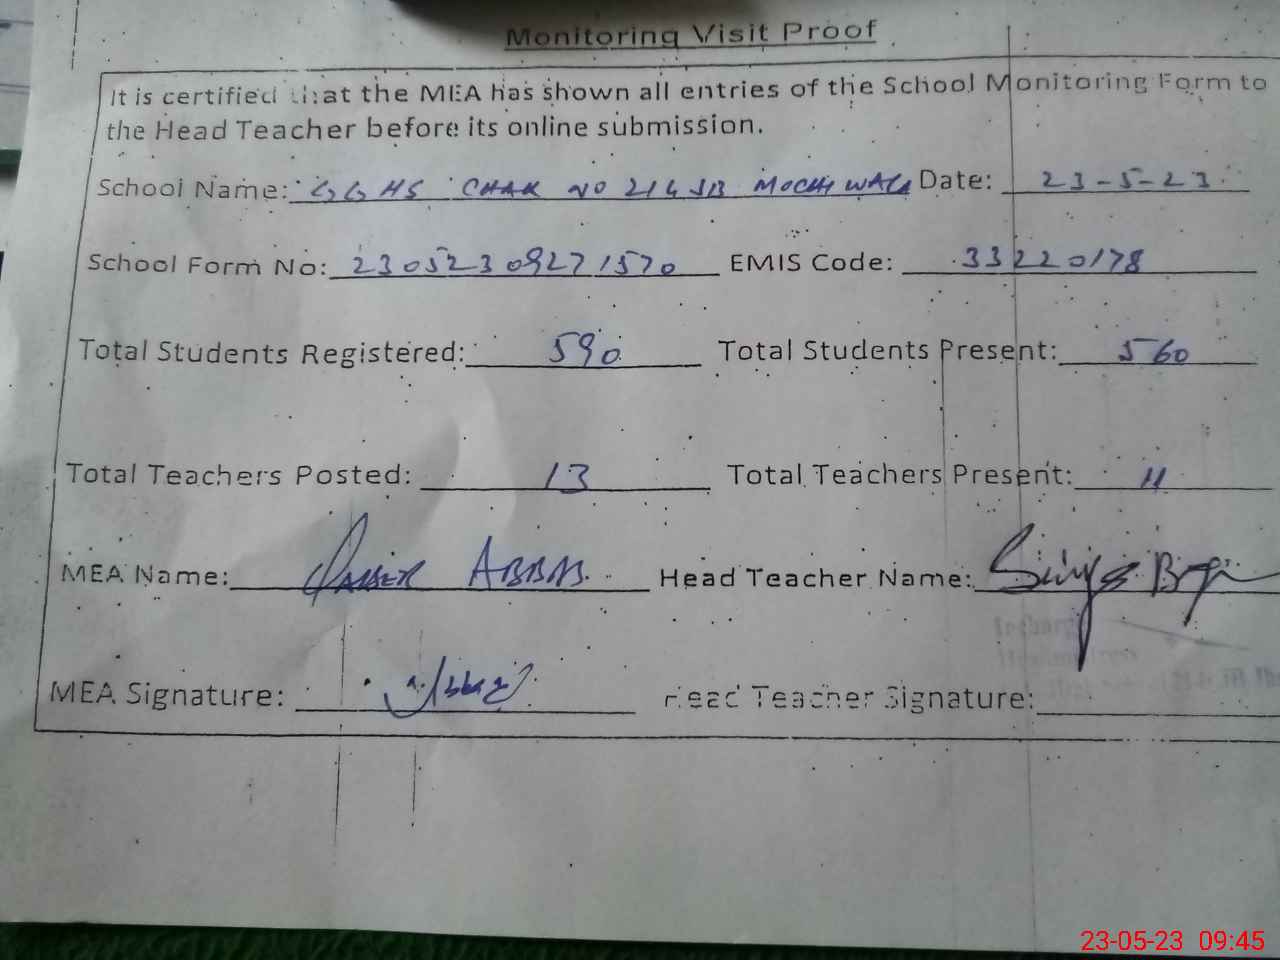 Monitoring Visit Proof
It is certified that the MEA has shown all entries of the School Monitoring Form to
the Head Teacher before its online submission.
School Name: GGHS CHAK NO 214 JB MOCHI WALA Date: 23-5-23
School Form No: 23052309271570 EMIS Code: 33220178
Total Students Registered: 590 Total Students Present: 560
Total Teachers Posted: 13 Total Teachers Present: 11
MEA Name: QAISER ABBAS Head Teacher Name:
MEA Signature: Head Teacher Signature:
23-05-23 09:45